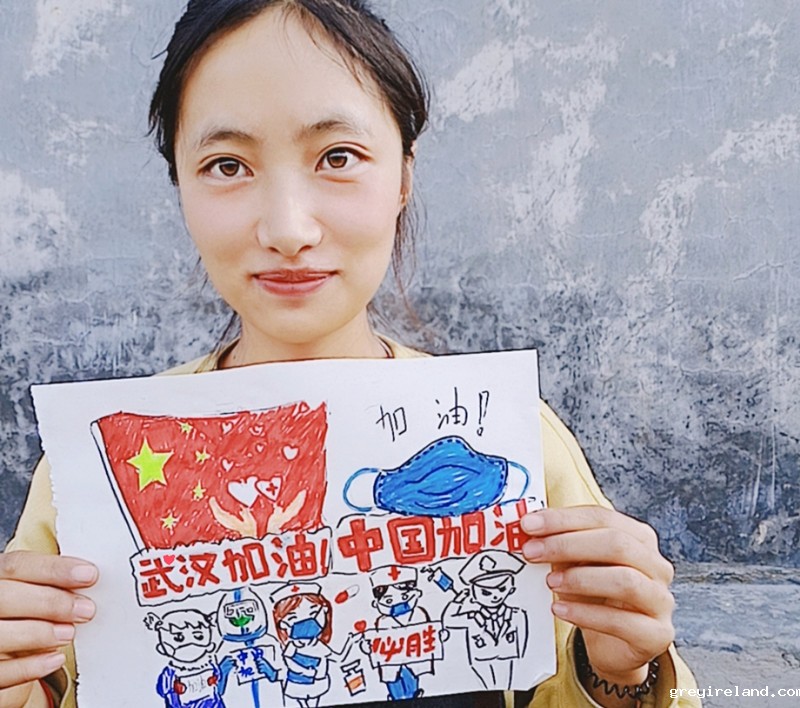 加油!
武汉加油!中国加油
必胜
加油
中国
加
greyireland.com